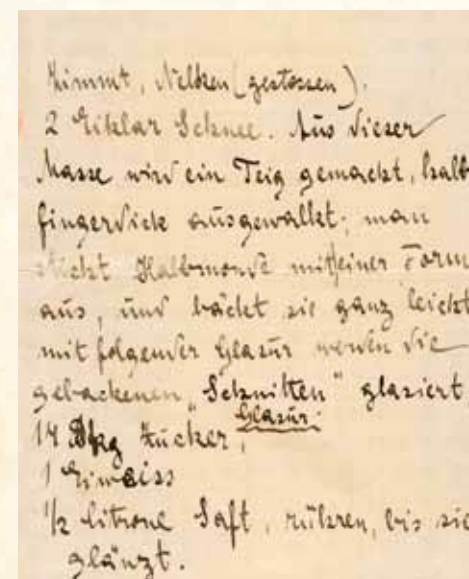 Zimmt, Nelken (gestossen).
2 Eiklar Schnee. Aus dieser
Masse wird ein Teig gemacht, halb
fingerdick ausgewalkt; man
sticht Halbmonde mit einer Form
aus, und bäckt sie ganz leicht
mit folgender Glasur werden die
gebackenen „Schnitten" glasiert
Glasur:
14 Dkg Zucker,
1 Eiweiss
1/2 Citrone Saft, rühren, bis sie
glänzt.